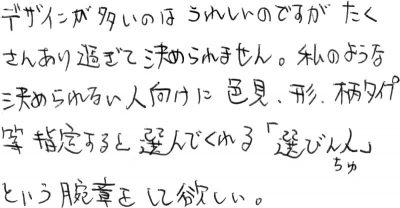 デザインが多いのはうれしいのですがたく
さんあり過ぎて決められません。私のような
決められない人向けに色見、形、柄タイプ
等指定すると選んでくれる「選びん人」
ちゅ
という腕章をして欲しい。